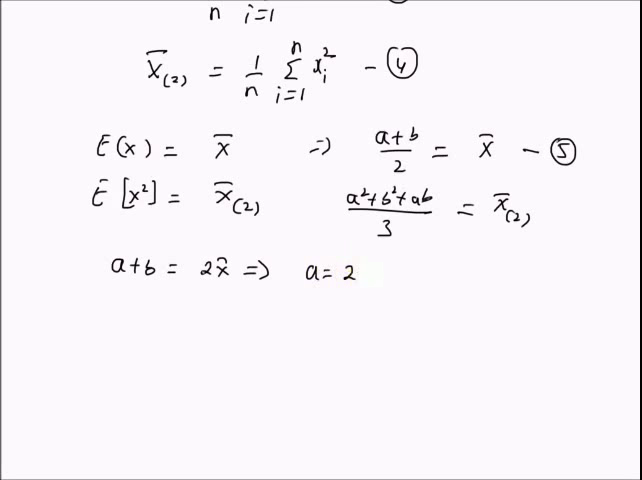 n i=1
x̄₍₂₎ = 1/n Σ(i=1 to n) xᵢ² - ④
E(x) = x̄ ⇒ (a+b)/2 = x̄ - ⑤
E[x²] = x̄₍₂₎ (a²+b²+ab)/3 = x̄₍₂₎
a+b = 2x̄ ⇒ a = 2